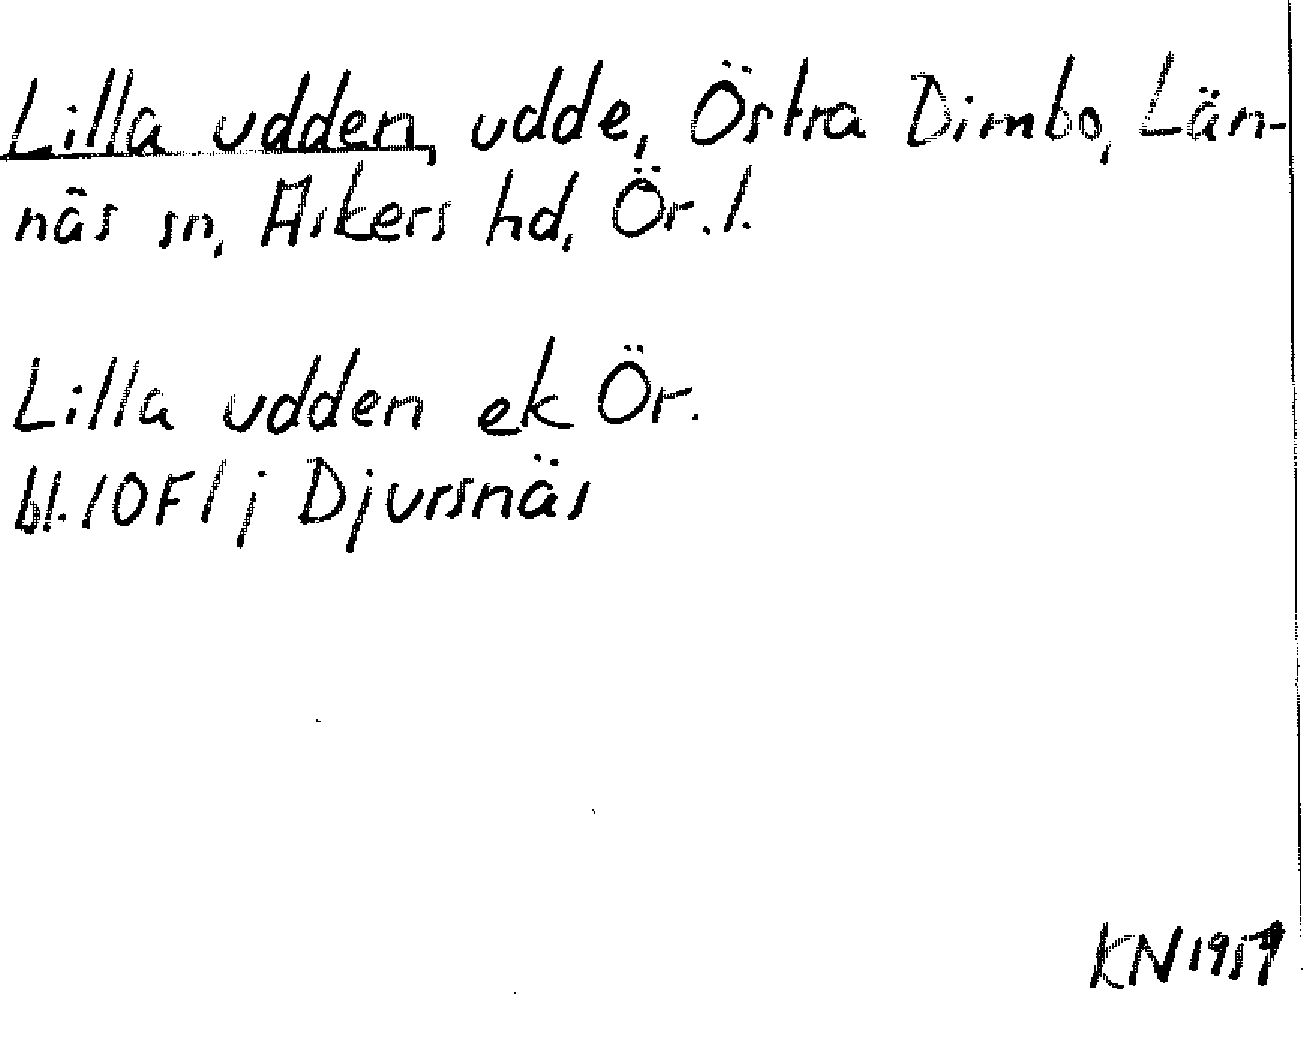 Lilla udden, udde, Östra Dimbo, Län-
näs sn, Askers hd, Ör. l.
Lilla udden ek Ör.
bl. 10F1j Djursnäs
KN 1957